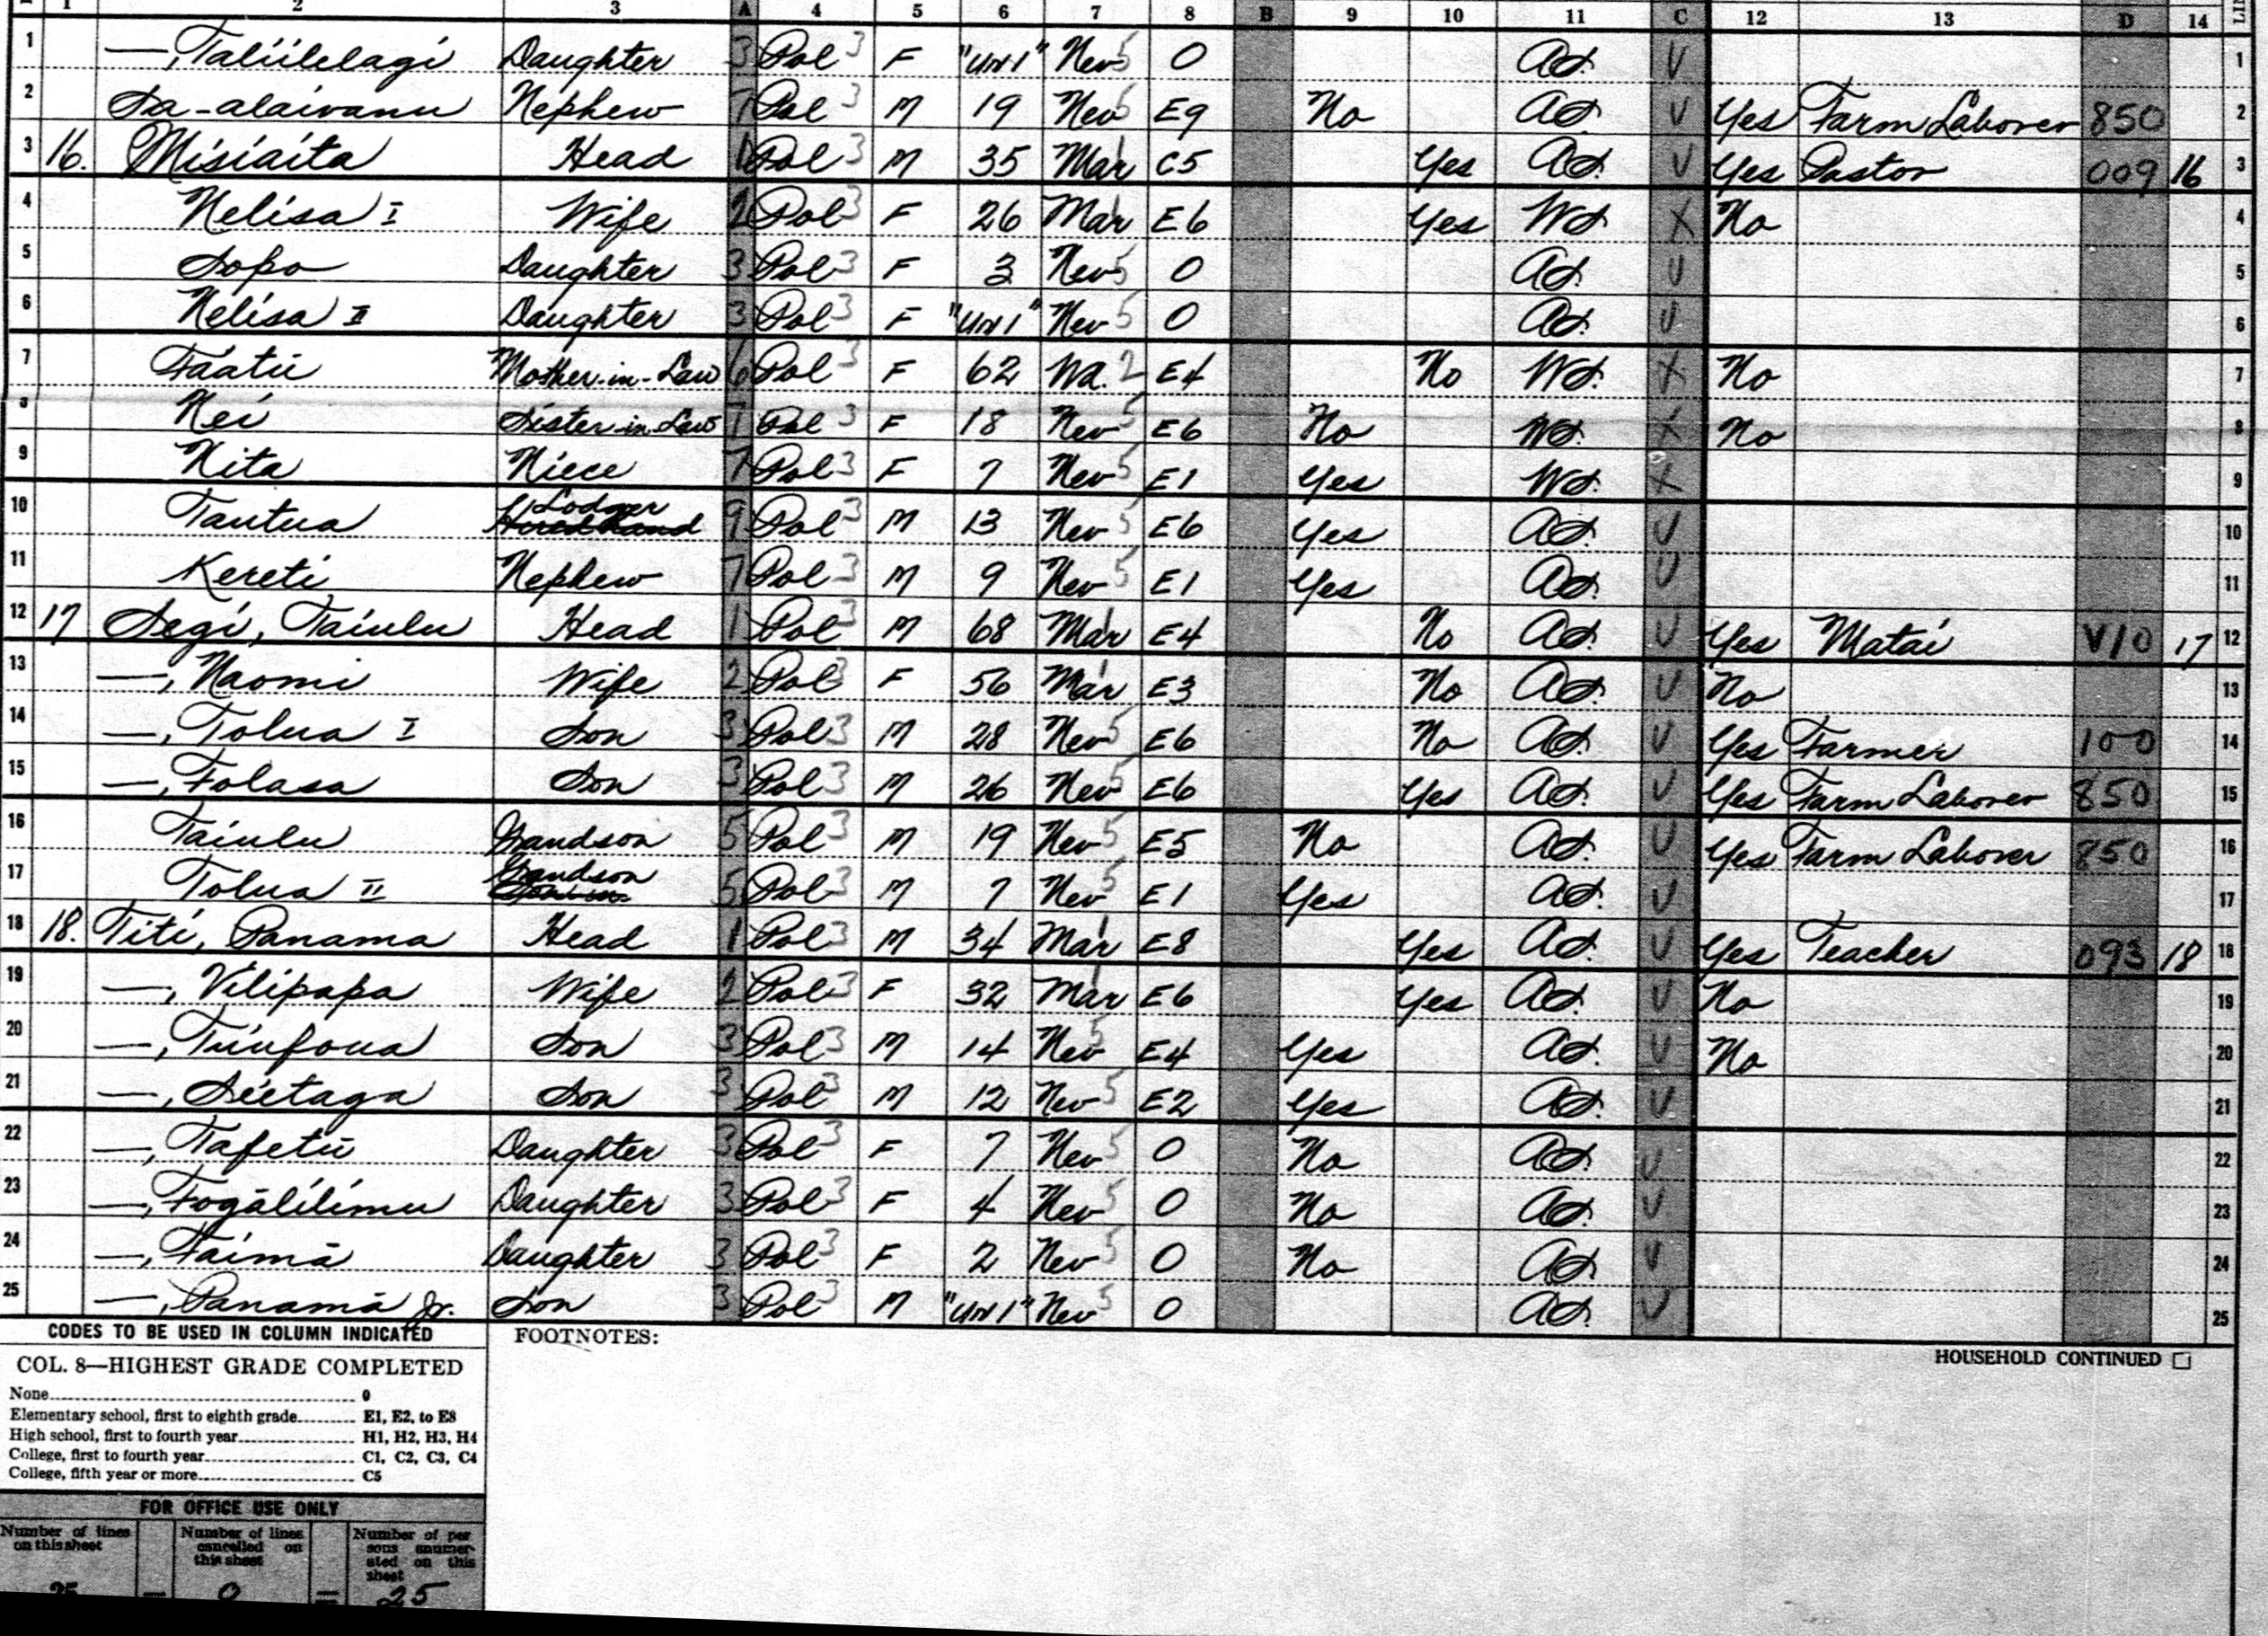 1 2 3 A 4 5 6 7 8 B 9 10 11 C 12 13 D 14
1 —, Taliilelagi Daughter 3 Pol 3 F "UN1" Nev 5 0 AS. V 1
2 Sa-alaivanu Nephew 7 Pol 3 M 19 Nev 5 E9 No AS. V Yes Farm Laborer 850 2
3 16. Misiaita Head 1 Pol 3 M 35 Mar 1 C5 Yes AS. V Yes Pastor 009 16 3
4 Nelisa I Wife 2 Pol 3 F 26 Mar 1 E6 Yes WS X No 4
5 Sopo Daughter 3 Pol 3 F 3 Nev 5 0 AS. V 5
6 Nelisa II Daughter 3 Pol 3 F "UN1" Nev 5 0 AS. V 6
7 Faatū Mother-in-Law 6 Pol 3 F 62 Wd. 2 E4 No WS. X No 7
8 Nei Sister-in-Law 7 Pol 3 F 18 Nev 5 E6 No WS. X No 8
9 Nita Niece 7 Pol 3 F 7 Nev 5 E1 Yes WS. X 9
10 Tautua Lodger Hired hand 9 Pol 3 M 13 Nev 5 E6 Yes AS. V 10
11 Kereti Nephew 7 Pol 3 M 9 Nev 5 E1 Yes AS. V 11
12 17 Segi, Taiulu Head 1 Pol 3 M 68 Mar 1 E4 No AS. V Yes Matai V10 17 12
13 —, Naomi Wife 2 Pol 3 F 56 Mar 1 E3 No AS. V No 13
14 —, Tolua I Son 3 Pol 3 M 28 Nev 5 E6 No AS. V Yes Farmer 100 14
15 —, Folasa Son 3 Pol 3 M 26 Nev 5 E6 Yes AS. V Yes Farm Laborer 850 15
16 Taiulu Grandson 5 Pol 3 M 19 Nev 5 E5 No AS. V Yes Farm Laborer 850 16
17 Tolua II Grandson 5 Pol 3 M 7 Nev 5 E1 Yes AS. V 17
18 18. Titi, Panama Head 1 Pol 3 M 34 Mar 1 E8 Yes AS. V Yes Teacher 093 18 18
19 —, Vilipapa Wife 2 Pol 3 F 32 Mar 1 E6 Yes AS. V No 19
20 —, Tiufoua Son 3 Pol 3 M 14 Nev 5 E4 Yes AS. V No 20
21 —, Siietaga Son 3 Pol 3 M 12 Nev 5 E2 Yes AS. V 21
22 —, Tafetū Daughter 3 Pol 3 F 7 Nev 5 0 No AS. V 22
23 —, Fogālilimu Daughter 3 Pol 3 F 4 Nev 5 0 No AS. V 23
24 —, Faimā Daughter 3 Pol 3 F 2 Nev 5 0 No AS. V 24
25 —, Panamā Jr. Son 3 Pol 3 M "UN1" Nev 5 0 AS. V 25
CODES TO BE USED IN COLUMN INDICATED
FOOTNOTES:
HOUSEHOLD CONTINUED
COL. 8—HIGHEST GRADE COMPLETED
None 0
Elementary school, first to eighth grade E1, E2, to E8
High school, first to fourth year H1, H2, H3, H4
College, first to fourth year C1, C2, C3, C4
College, fifth year or more C5
FOR OFFICE USE ONLY
Number of lines on this sheet — Number of lines cancelled on this sheet = Number of persons enumerated on this sheet
25 — 0 = 25